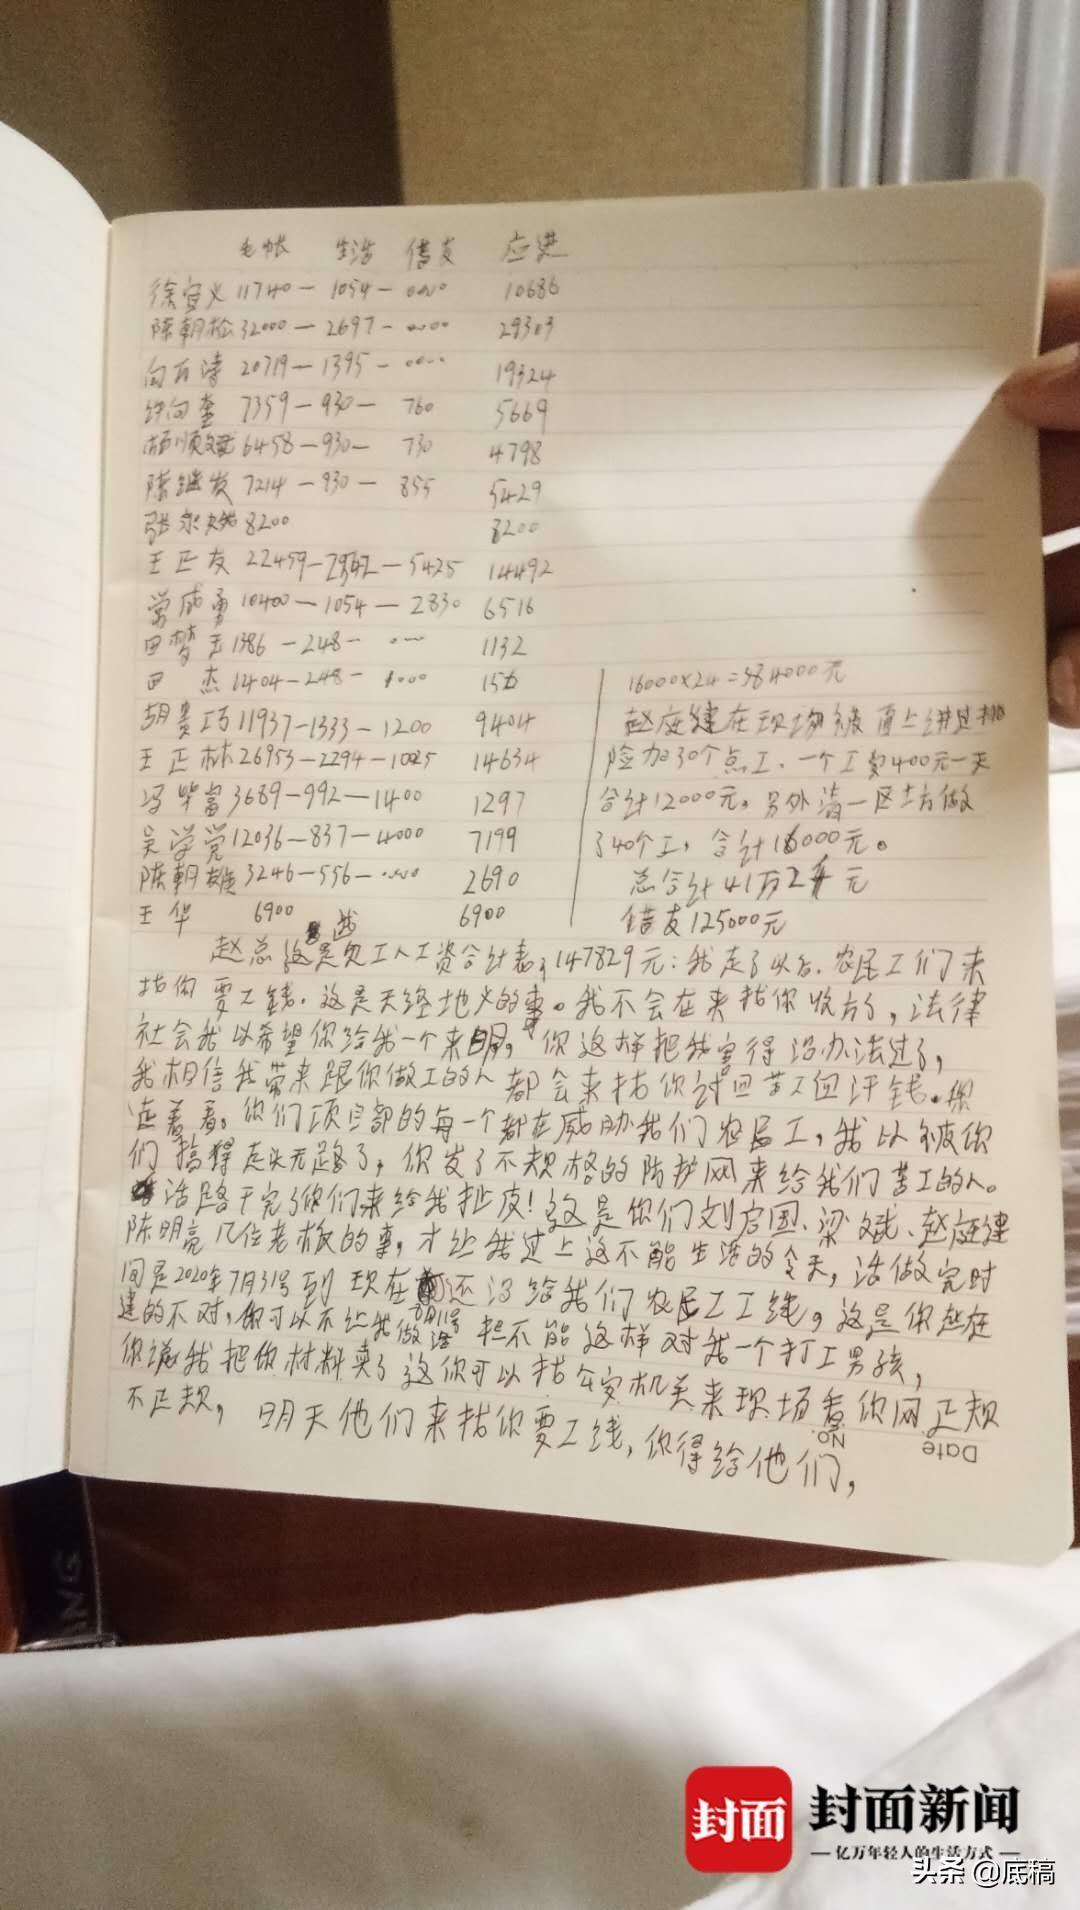 毛帐 生活 借支 应进
徐宜义 11740- 1054- 0000 10686
陈朝松 32000-2697-0000 29303
向万涛 20719-1395-0000 19324
向奎 7359-930- 760 5669
顺斌 6458-930- 730 4798
陈继发 7214-930- 855 5429
张 8200 8200
王正友 22459-2542-5425 14492
常成勇 10400-1054-2830 6516
田梦玉 1386-248- 1132
田 杰 1404-248-
胡贵巧 11937-1333-1200 9404
王正林 26953-2294-1025 14634
冯毕富 3689-992-1400 1297
吴学党 12036-837-4000 7199
陈朝雄 3246-556-0000 2690
王华 6900 6900
16000×24=384000元
赵庭建在现场被 直上进过排
险加30个点工、一个工安400元一天
合计12000元。另外清一区土方做
了40个工，合计16000元。
总合计41万2千元
借支125000元
赵总这是兑工人工资合计表，147829元：我走了以后、农民工们来
找你要工钱、这是天经地义的事。我不会在来找你收方了，法律
社会我以希望你给我一个来明，你这样把我害得没办法过了，
我相信我带来跟你做工的人都会来找你讨回苦工血汗钱。你
连着看。你们项目部的每一个都在威胁我们农民工，我以被你
们搞得走头无路了，你发了不规格的防护网来给我们苦工的人。
活路干完了你们来给我扯皮！这是你们刘启国、梁斌、赵庭建
陈明亮几位老板的事，才让我过上这不能生活的今天，活做完时
间是2020年7月31号到现在还没给我们农民工工钱，这是你赵庭
建的不对，你可以不让我做活 担不能这样对我一个打工男孩，
你说我把你材料卖了这你可以找公安机关来现场看你网正规
不正规，明天他们来找你要工钱，你得给他们，
No.
Date
NG
封面 封面新闻
—亿万年轻人的生活方式—
头条 @底稿